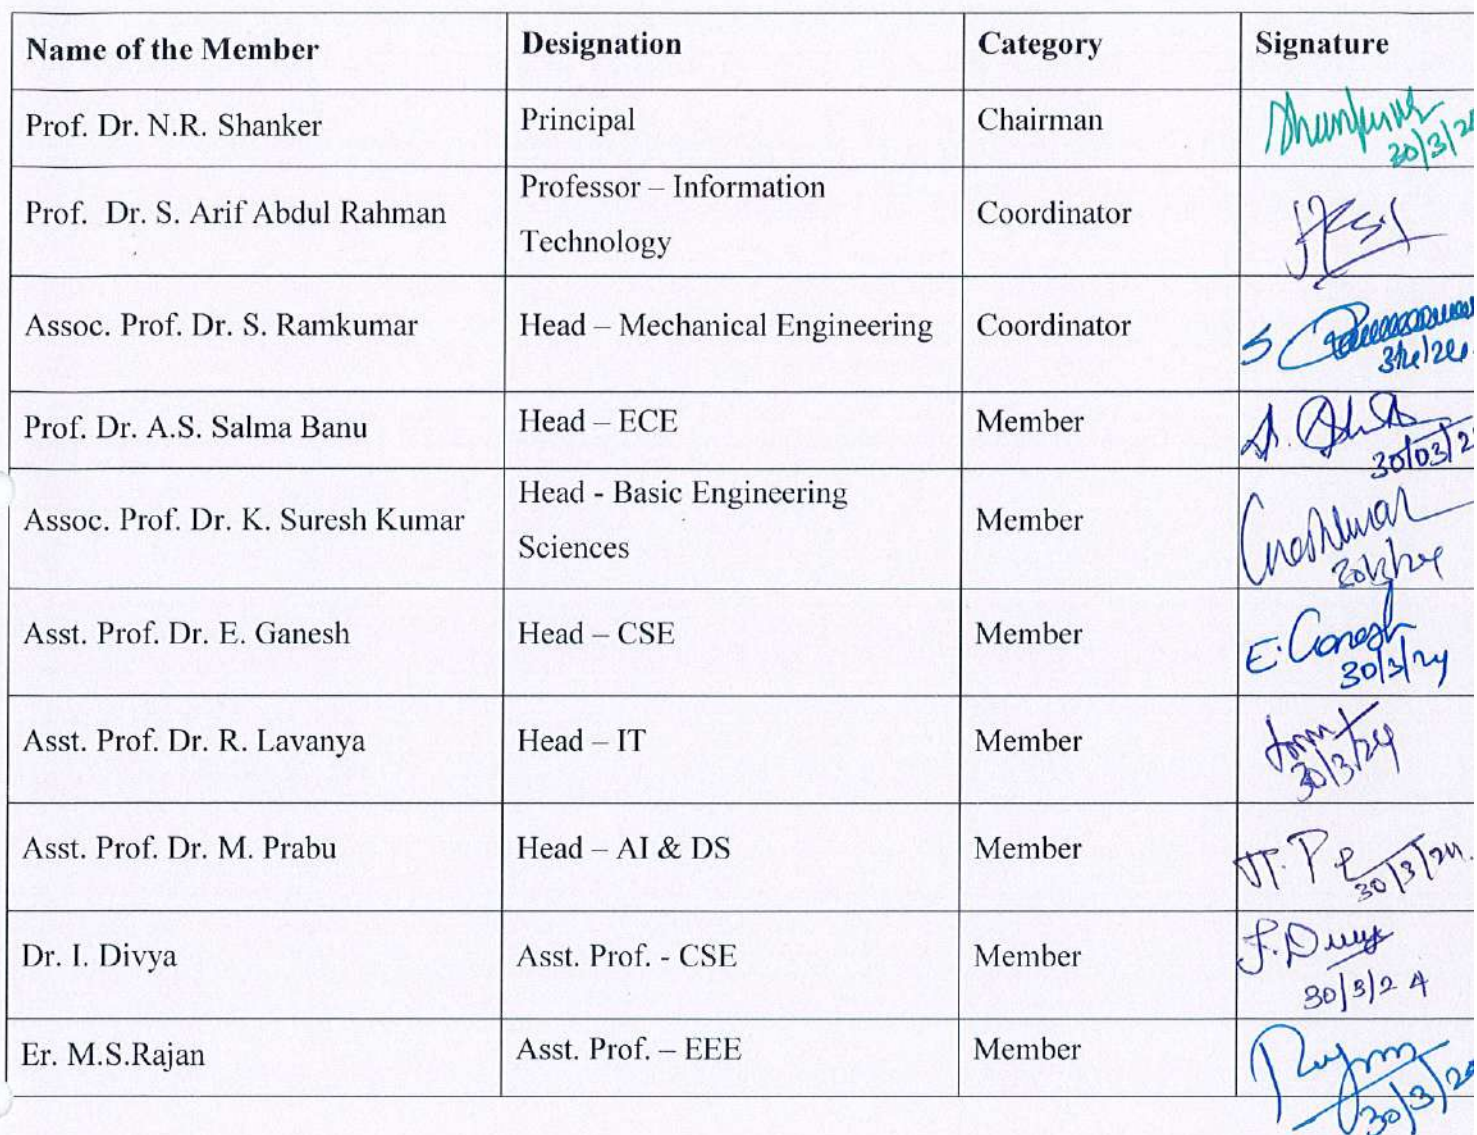 Name of the Member Designation Category Signature
Prof. Dr. N.R. Shanker Principal Chairman
30/3/2
Prof. Dr. S. Arif Abdul Rahman Professor – Information
Technology Coordinator
Assoc. Prof. Dr. S. Ramkumar Head – Mechanical Engineering Coordinator S
Prof. Dr. A.S. Salma Banu Head – ECE Member
30/03/2
Assoc. Prof. Dr. K. Suresh Kumar Head - Basic Engineering
Sciences Member
30/3/24
Asst. Prof. Dr. E. Ganesh Head – CSE Member E. Ganesh
30/3/24
Asst. Prof. Dr. R. Lavanya Head – IT Member
30/3/24
Asst. Prof. Dr. M. Prabu Head – AI & DS Member
30/3/24.
Dr. I. Divya Asst. Prof. - CSE Member
30/3/24
Er. M.S.Rajan Asst. Prof. – EEE Member
30/3/2